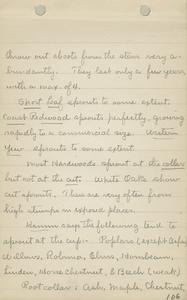 throw out shoots from the stem very a-
bundantly. They last only a few years,
with a max. of 4.
Short leaf sprouts to some extent.
Coast Redwood sprouts perfectly, growing
rapidly to a commercial size. Western
Yew sprouts to some extent.
Most Hardwoods sprout at the collar
but not at the cut. White Oaks show
cut sprouts. These are very often from
high stumps in exposed places.
says the following tend to
sprout at the cup: Poplars (except Aspen)
Willows, Robinia, Elms, Hornbeam,
Linden, Horse Chestnut, & Beech (weak)
Root collar: Ash, Maple, Chestnut,
106